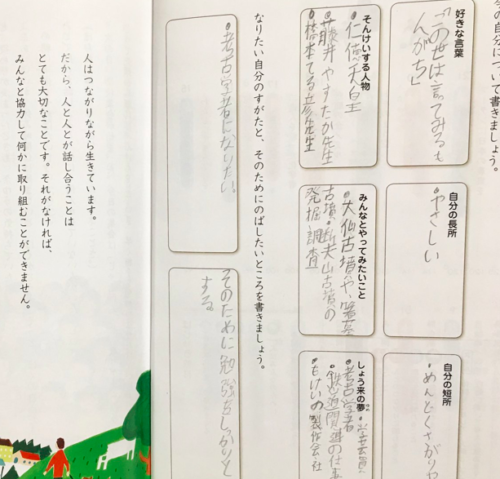 今の自分について書きましょう。
好きな言葉
「この世は言ってみるも
んがち」
自分の長所
・やさしい
自分の短所
・めんどくさがりや
そんけいする人物
・仁徳天皇
・藤井やすたか先生
・橋本てる彦先生
みんなとやってみたいこと
・大仙古墳や
古墳・断夫山古墳の
発掘調査
しょう来の夢
・考古学者・学芸員
・鉄道関連の仕事
・もけいの製作会社
なりたい自分のすがたと、そのためにのばしたいところを書きましょう。
・考古学者になりたい
そのために勉強をしっかりと
する。
人はつながりながら生きています。
だから、人と人とが話し合うことは
とても大切なことです。それがなければ、
みんなと協力して何かに取り組むことができません。